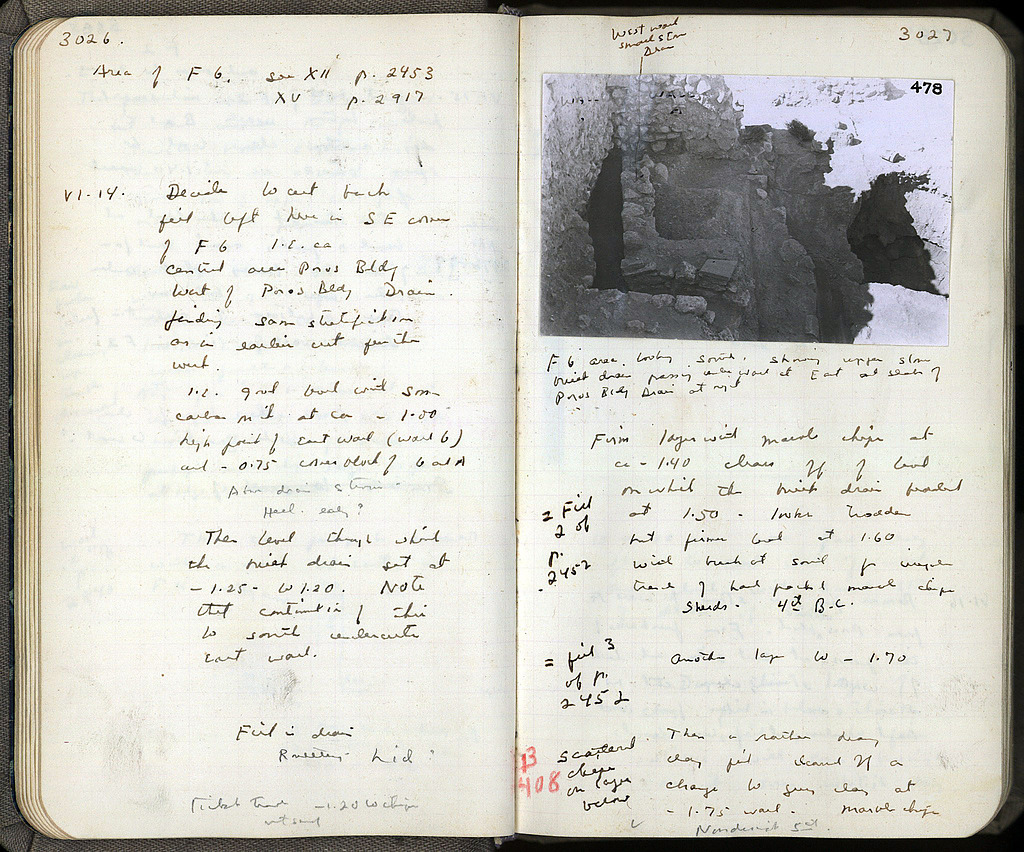 3026.
Area of F 6. see XII p. 2453
XV p. 2917
VI-14. Decide to cut back
fill left here in SE corner
of F 6 i.e. ca
central area Poros Bldg
West of Poros Bldg Drain.
finding same stratification
as in earlier cut further
west.
i.e. good level with some
carbon in it at ca - 1.00
high point of east wall (wall 6)
and - 0.75 corner block of 6 and A
Above drain
Hell. early?
Then level through which
the brick drain set at
- 1.25 - to 1.20. Note
that continuation of this
to south undercuts
east wall.
Fill in drain
lid?
- 1.20 to chips
3027
West wall
small stone
Drain
478
F 6 area looking south. showing upper stone
brick drain passing under wall at East and slabs of
Poros Bldg Drain at right
Firm layer with marble chips at
ca - 1.40 cleans off of level
on which the brick drain
at 1.50 -
but firmer level at 1.60
with
trace of hard packed marble chips
Sherds - 4th B.C.
= Fill
2 of
p.
2452
= fill 3
of p.
2452
Another layer to - 1.70
B
408
Scattered
chips
on layer
below
Then a rather
clay fill
change to grey clay at
- 1.75 Marble chips
Nondescript 5th.